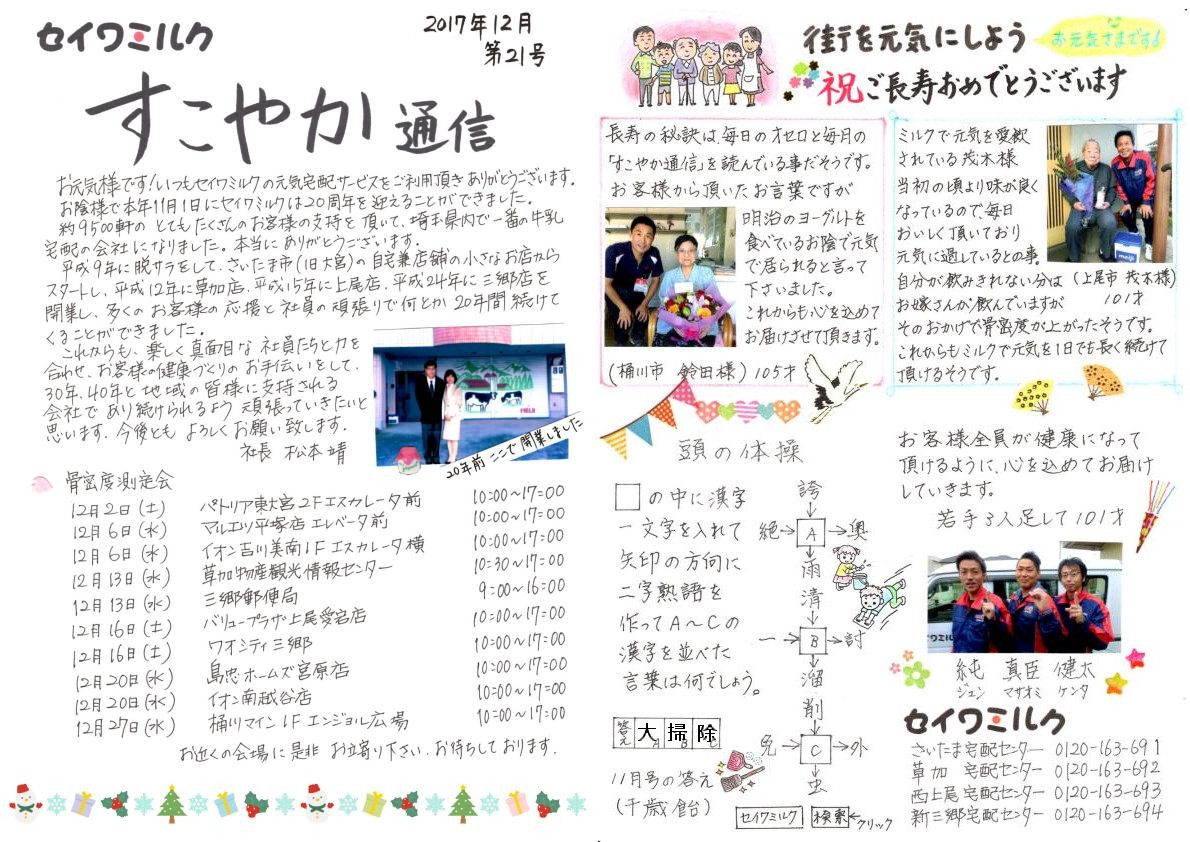 セイワミルク
2017年12月
第21号
すこやか通信
お元気様です!いつもセイワミルクの元気宅配サービスをご利用頂きありがとうございます。
お陰様で本年11月1日にセイワミルクは20周年を迎えることができました。
約9500軒の とてもたくさんのお客様の支持を頂いて、埼玉県内で一番の牛乳
宅配の会社になりました。本当にありがとうございます。
平成9年に脱サラをして、さいたま市(旧大宮)の自宅兼店舗の小さなお店から
スタートし、平成12年に草加店、平成15年に上尾店、平成24年に三郷店を
開業し、多くのお客様の応援と社員の頑張りで何とか20年間続けて
くることができました。
これからも、楽しく真面目な社員たちと力を
合わせ、お客様の健康づくりのお手伝いをして、
30年、40年と地域の皆様に支持される
会社であり続けられるよう頑張っていきたいと
思います。今後ともよろしくお願い致します。
社長 松本靖
20年前ここで開業しました
骨密度測定会
12月2日(土) パトリア東大宮2Fエスカレータ前 10:00~17:00
12月6日(水) マルエツ平塚店エレベータ前 10:00~17:00
12月6日(水) イオン吉川美南1Fエスカレータ横 10:00~17:00
12月13日(水) 草加物産観光情報センター 10:30~17:00
12月13日(水) 三郷郵便局 9:00~16:00
12月16日(土) バリュープラザ上尾愛宕店 10:00~17:00
12月16日(土) ワオシティ三郷 10:00~17:00
12月20日(水) 島忠ホームズ宮原店 10:00~17:00
12月20日(水) イオン南越谷店 10:00~17:00
12月27日(水) 桶川マイン1Fエンジョル広場 10:00~17:00
お近くの会場に是非 お立寄り下さい。お待ちしております。
街を元気にしよう
お元気さまです!
祝ご長寿おめでとうございます
長寿の秘訣は、毎日のオセロと毎月の
「すこやか通信」を読んでいる事だそうです。
お客様から頂いたお言葉ですが
明治のヨーグルトを
食べているお陰で元気
で居られると言って
下さいました。
これからも心を込めて
お届けさせて頂きます。
(桶川市 鈴田様)105才
ミルクで元気を愛飲
されている茂木様
当初の頃より味が良く
なっているので、毎日
おいしく頂いており
元気に過しているとの事。
自分が飲みきれない分は
お嫁さんが飲んでいますが
そのおかげで骨密度が上がったそうです。
これからもミルクで元気を1日でも長く続けて
頂けるそうです。
(上尾市 茂木様)
101才
meiji
頭の体操
□の中に漢字
一文字を入れて
矢印の方向に
二字熟語を
作ってA~Cの
漢字を並べた
言葉は何でしょう。
誇
↓
絶→A→奥
↓
雨
清
↓
一→B→討
↓
溜
削
↓
免→C→外
↓
虫
答え 大A 掃B 除C
11月号の答え
(千歳飴)
お客様全員が健康になって
頂けるように、心を込めてお届け
していきます。
若手3人足して101才
純 真臣 健太
ジュン マサオミ ケンタ
セイワミルク
さいたま宅配センター 0120-163-691
草加 宅配センター 0120-163-692
西上尾宅配センター 0120-163-693
新三郷宅配センター 0120-163-694
セイワミルク 検索 ←クリック